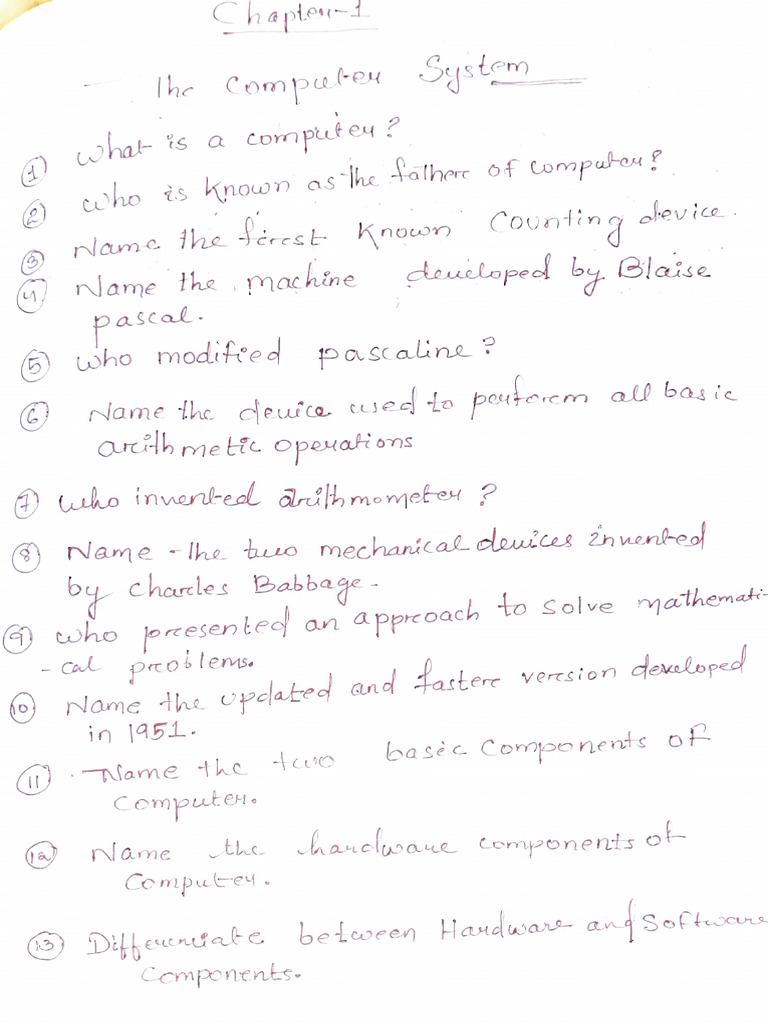 Chapter-1
The Computer System
① What is a computer?
② Who is known as the father of computer?
③ Name the first known counting device.
④ Name the machine developed by Blaise
pascal.
⑤ Who modified pascaline?
⑥ Name the device used to perform all basic
arithmetic operations
⑦ Who invented Arithmometer?
⑧ Name the two mechanical devices invented
by Charles Babbage.
⑨ Who presented an approach to solve mathemati-
-cal problems.
⑩ Name the updated and faster version developed
in 1951.
⑪ Name the two basic components of
Computer.
⑫ Name the hardware components of
Computer.
⑬ Differenciate between Hardware and Software
Components.